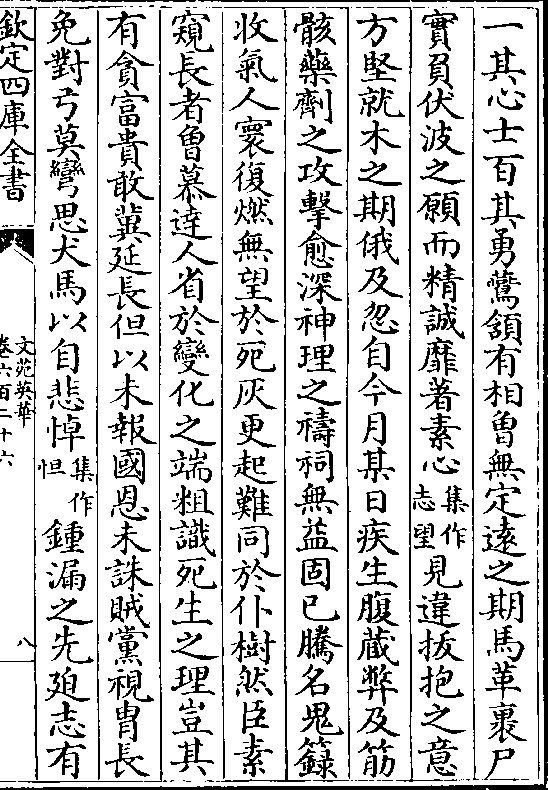 一其心士百其勇鷰頷有相曾無定遠之期馬革裹尸
實負伏波之願而精誠靡著素心集作志望見違扳抱之意
方堅就木之期俄及忽自今月某日疾生腹藏弊及筋
骸藥劑之攻擊愈深神理之禱祠無益固已騰名鬼籙
收氣人寰復燃無望於死灰更起難同於仆樹然臣素
窺長者魯慕達人省於變化之端粗識死生之理豈其
有貪富貴敢冀延長但以未報國恩未誅賊黨視胄長
免對弓莫彎思犬馬以自悲悼集作怛鍾漏之先廹志有
欽定四庫全書
文苑英華
卷六百二十六
八